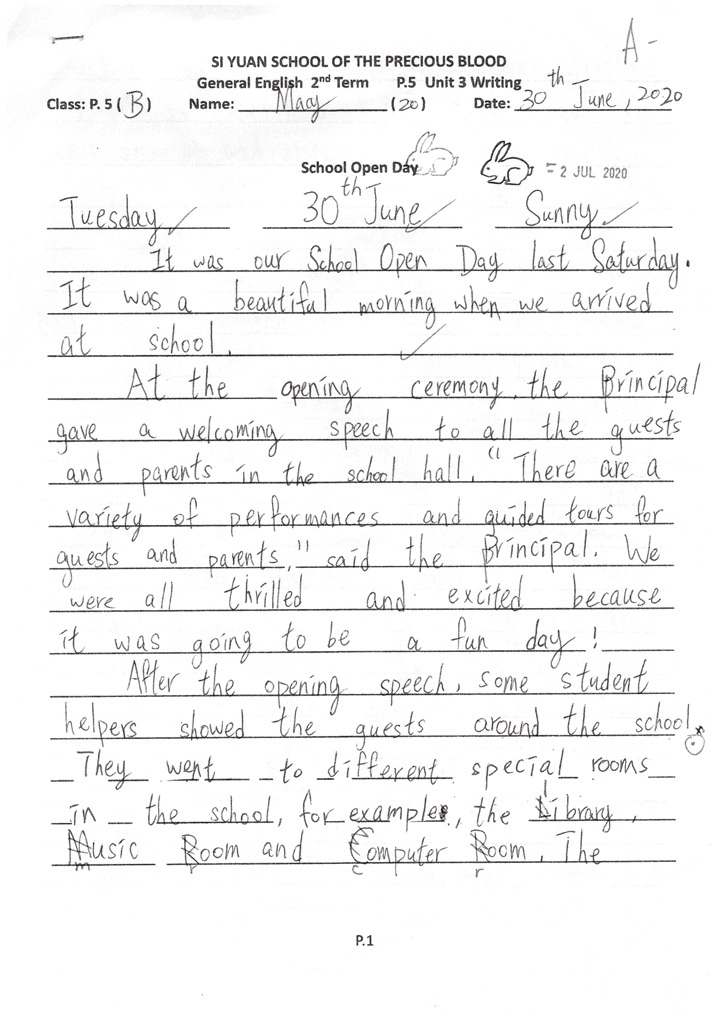 A-
SI YUAN SCHOOL OF THE PRECIOUS BLOOD
General English 2nd Term P.5 Unit 3 Writing
Class: P. 5 ( B ) Name: Macy (20) Date: 30th June, 2020
School Open Day
- 2 JUL 2020
Tuesday 30th June Sunny
It was our School Open Day last Saturday.
It was a beautiful morning when we arrived
at school.
At the opening ceremony, the Principal
gave a welcoming speech to all the guests
and parents in the school hall. "There are a
variety of performances and guided tours for
guests and parents," said the Principal. We
were all thrilled and excited because
it was going to be a fun day!
After the opening speech, some student
helpers showed the guests around the school.
They went to different special rooms
in the school, for example, the Library,
Music Room and Computer Room. The
m r c r
P.1